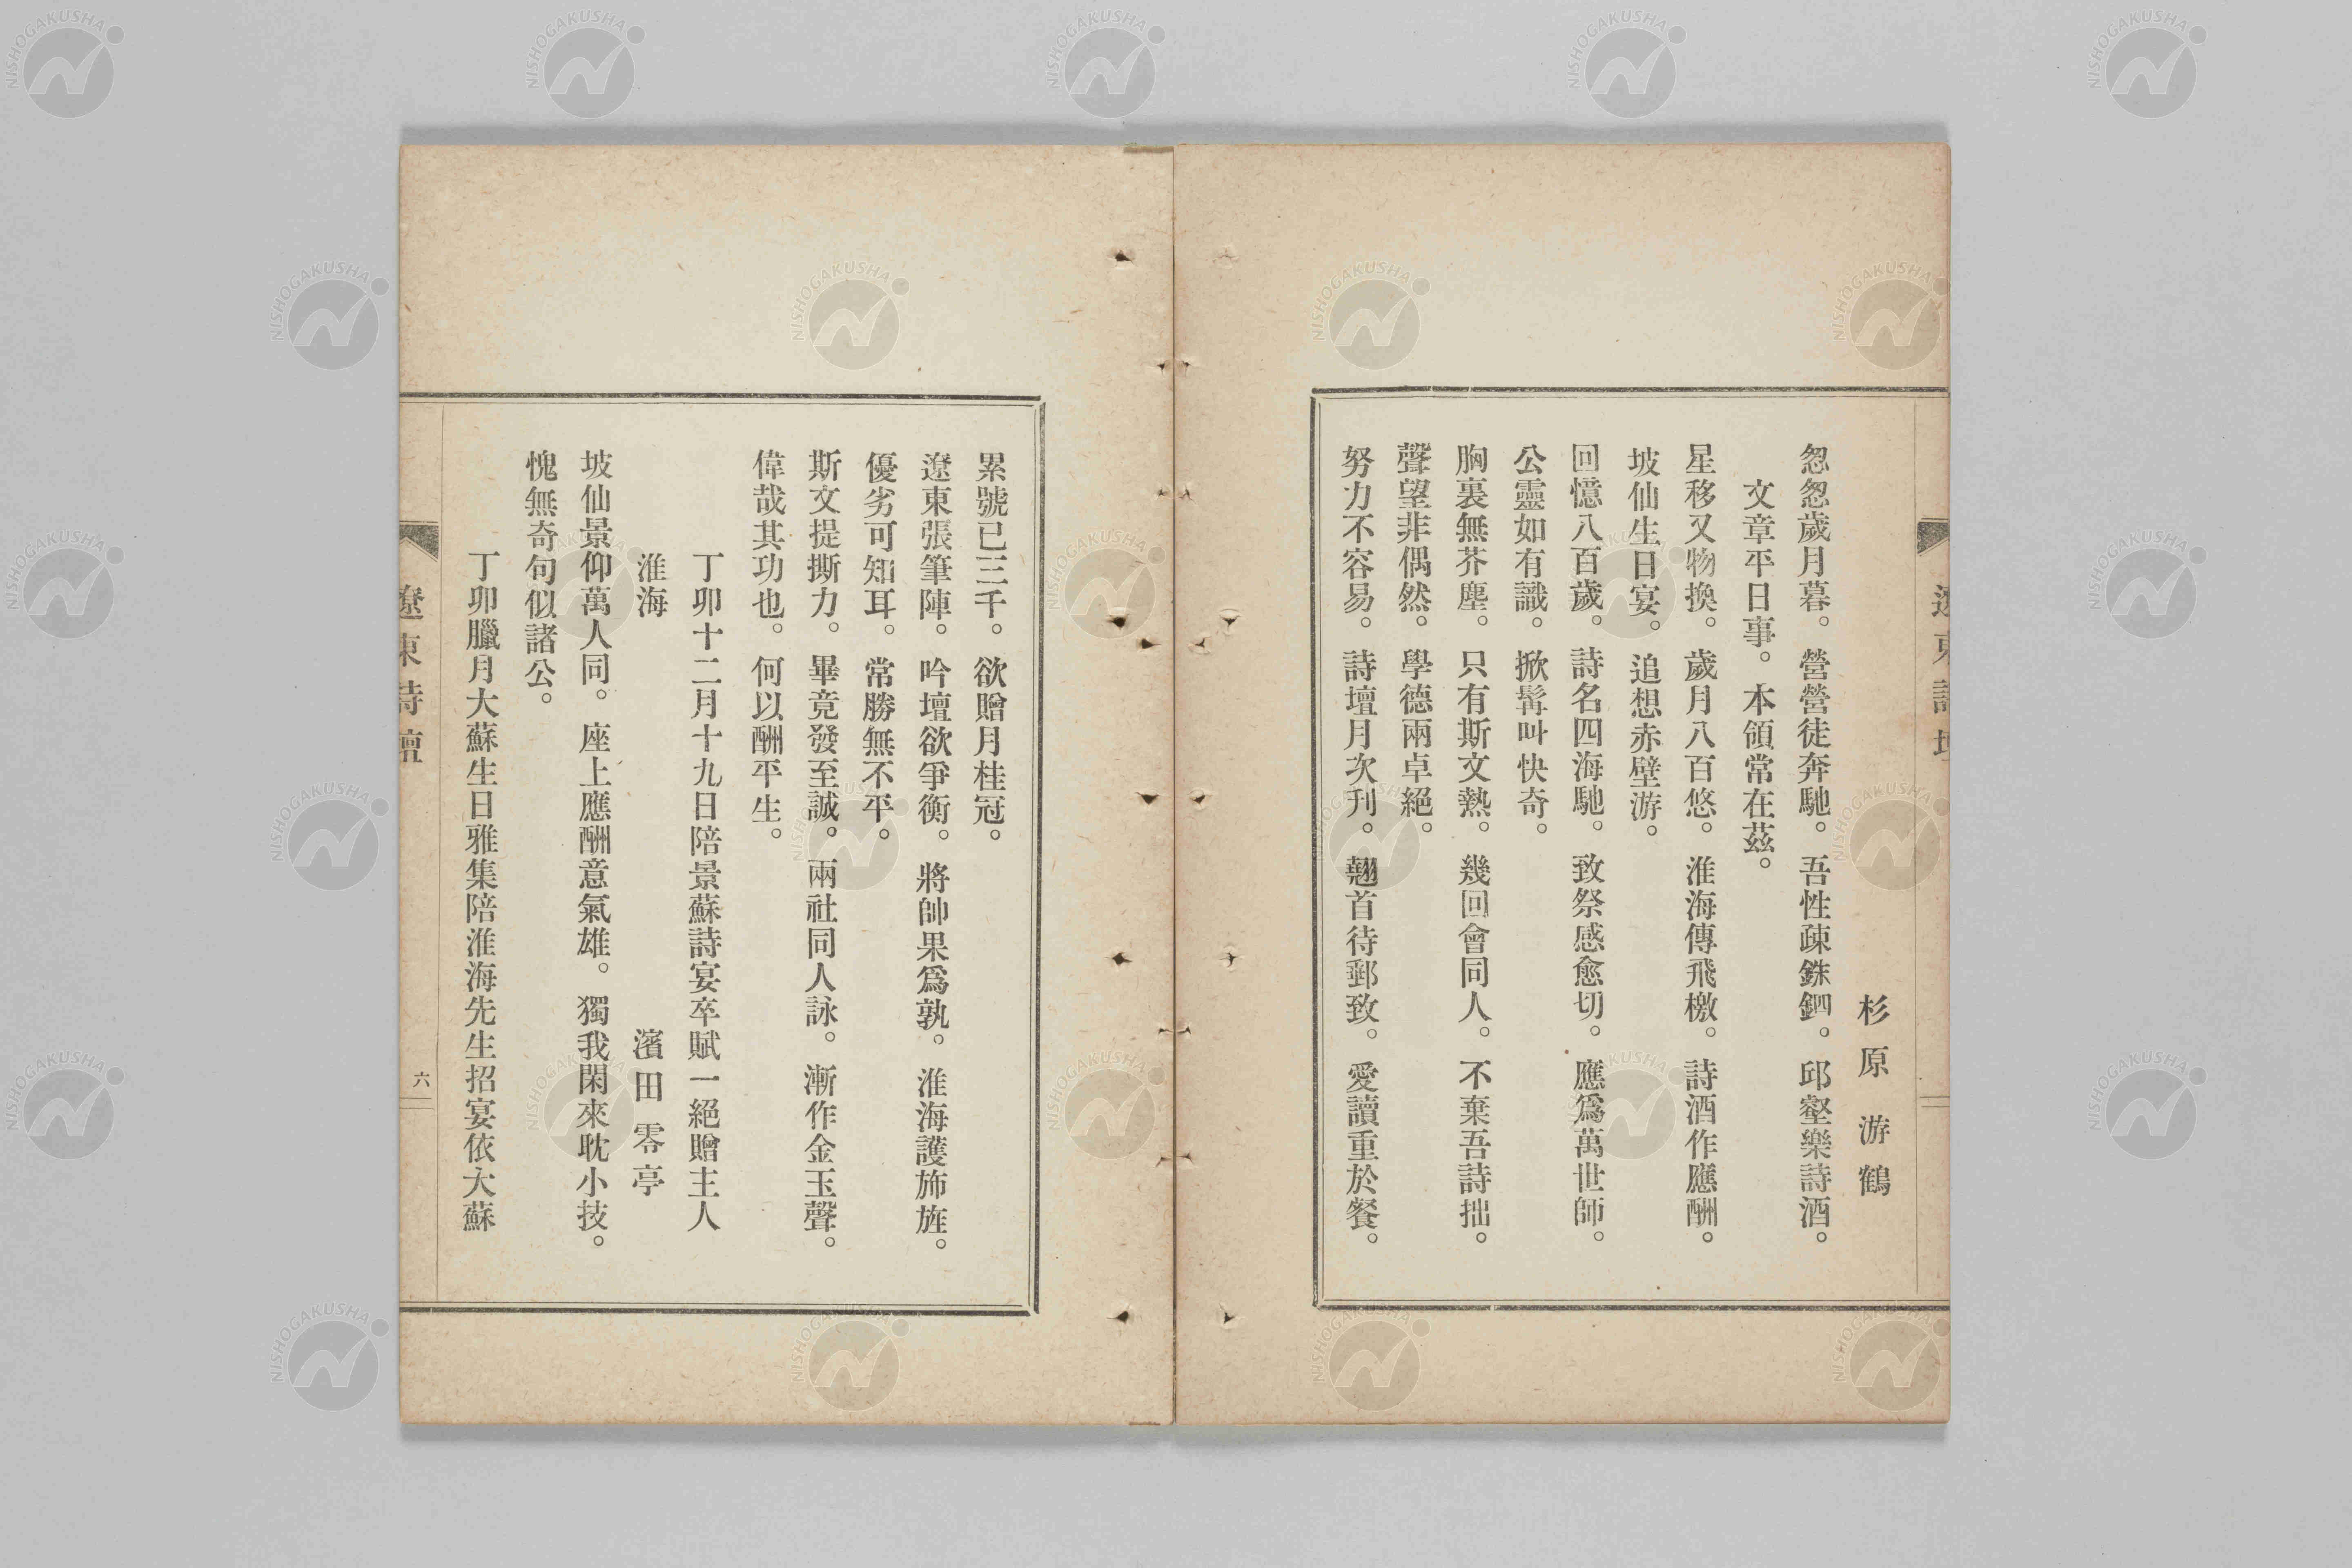 遼東詩壇
杉原游鶴
忽忽歲月暮。營營徒奔馳。吾性疎銖錙。邱壑樂詩酒。
文章平日事。本領常在茲。
星移又物換。歲月八百悠。淮海傳飛檄。詩酒作應酬。
坡仙生日宴。追想赤壁游。
回憶八百歲。詩名四海馳。致祭感愈切。應爲萬世師。
公靈如有識。掀髯叫快奇。
胸裏無芥塵。只有斯文熱。幾回會同人。不棄吾詩拙。
聲望非偶然。學德兩卓絕。
努力不容易。詩壇月次刋。翹首待郵致。愛讀重於餐。
累號已三千。欲贈月桂冠。
遼東張筆陣。吟壇欲爭衡。將帥果爲孰。淮海護旆旌。
優劣可知耳。常勝無不平。
斯文提撕力。畢竟發至誠。兩社同人詠。漸作金玉聲。
偉哉其功也。何以酬平生。
丁卯十二月十九日陪景蘇詩宴卒賦一絕贈主人
淮海　濱田零亭
坡仙景仰萬人同。座上應酬意氣雄。獨我閑來耽小技。
愧無奇句似諸公。
丁卯臘月大蘇生日雅集陪淮海先生招宴依大蘇
遼東詩壇
六
NISHOGAKUSHA